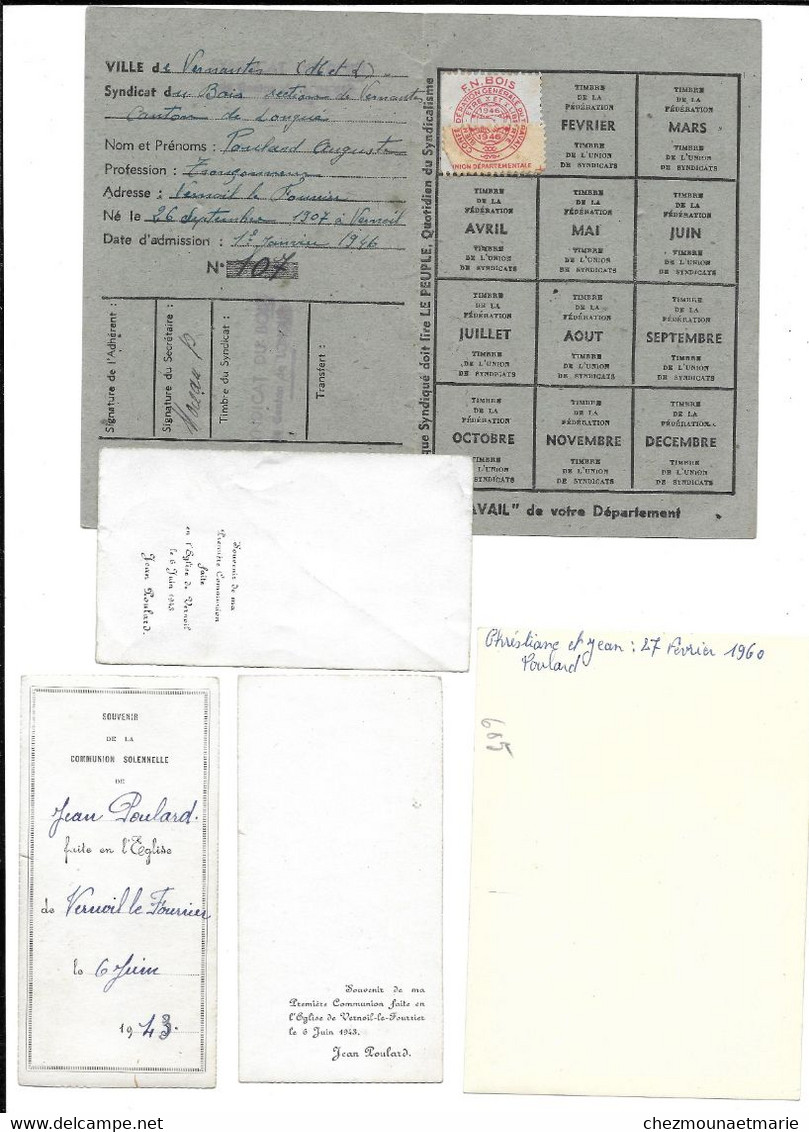 VILLE de Vernantes (M et L)
Syndicat du Bois section de Vernantes
Canton de Longué
Nom et Prénoms : Poulard Auguste
Profession : Tronçonneur
Adresse : Vernoil le Fourrier
Né le 26 septembre 1907 à Vernoil
Date d'admission : 1e Janvier 1946
N° 107
Signature de l'Adhérent :
Signature du Secrétaire :
Timbre du Syndicat :
Transfert :
que Syndiqué doit lire LE PEUPLE, Quotidien du Syndicalisme
F.N. BOIS
1946
1946
UNION DÉPARTEMENTALE
TIMBRE DE LA FÉDÉRATION
FEVRIER
TIMBRE DE L'UNION DE SYNDICATS
TIMBRE DE LA FÉDÉRATION
MARS
TIMBRE DE L'UNION DE SYNDICATS
TIMBRE DE LA FÉDÉRATION
AVRIL
TIMBRE DE L'UNION DE SYNDICATS
TIMBRE DE LA FÉDÉRATION
MAI
TIMBRE DE L'UNION DE SYNDICATS
TIMBRE DE LA FÉDÉRATION
JUIN
TIMBRE DE L'UNION DE SYNDICATS
TIMBRE DE LA FÉDÉRATION
JUILLET
TIMBRE DE L'UNION DE SYNDICATS
TIMBRE DE LA FÉDÉRATION
AOUT
TIMBRE DE L'UNION DE SYNDICATS
TIMBRE DE LA FÉDÉRATION
SEPTEMBRE
TIMBRE DE L'UNION DE SYNDICATS
TIMBRE DE LA FÉDÉRATION
OCTOBRE
TIMBRE DE L'UNION DE SYNDICATS
TIMBRE DE LA FÉDÉRATION
NOVEMBRE
TIMBRE DE L'UNION DE SYNDICATS
TIMBRE DE LA FÉDÉRATION
DECEMBRE
TIMBRE DE L'UNION DE SYNDICATS
AVAIL" de votre Département
Souvenir de ma
Première Communion
faite
en l'Eglise de Vernoil
le 6 Juin 1943
Jean Poulard.
Chréstiane et Jean : 27 Février 1960
Poulard
665
SOUVENIR
DE LA
COMMUNION SOLENNELLE
DE
Jean Poulard.
faite en l'Eglise
de Vernoil le Fourrier
le 6 Juin
1943.
Souvenir de ma
Première Communion faite en
l'Eglise de Vernoil-le-Fourrier
le 6 Juin 1943.
Jean Poulard.
chezmounaetmarie